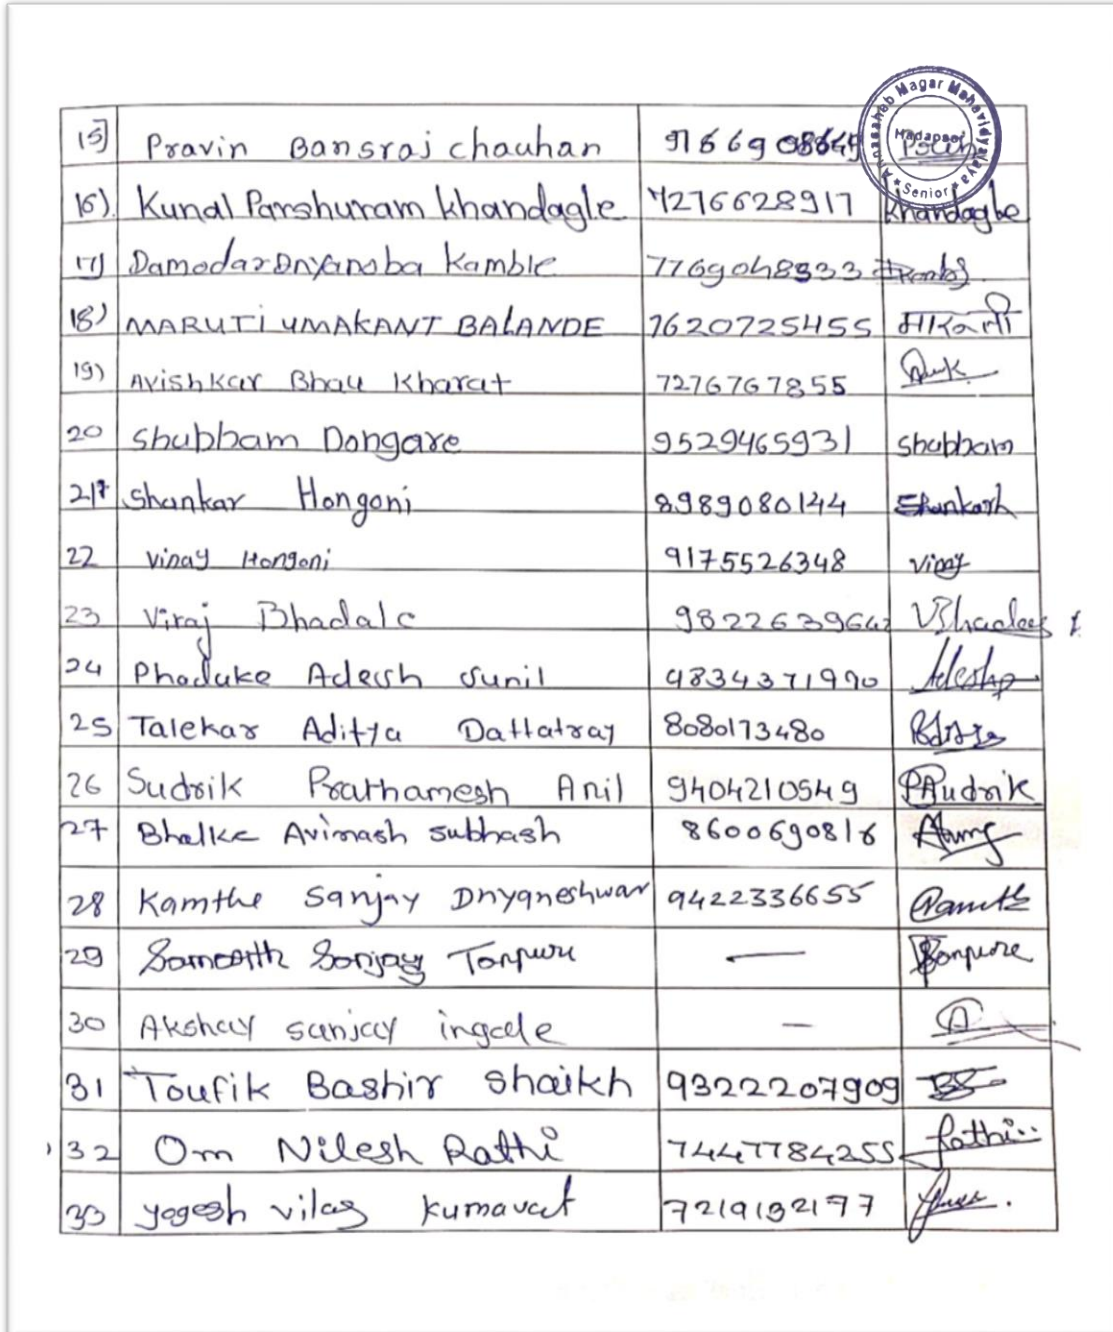 Annasaheb Magar Mahavidyalaya
Hadapsar
★ Senior ★
15] Pravin Bansraj chauhan
16) Kunal Parshuram khandagle 7276628917 khandagle
17) Damodar Dnyanoba Kamble
18) MARUTI UMAKANT BALANDE 7620725455
19) Avishkar Bhau Kharat 7276767855
20 Shubham Dongare 9529465931 shubham
21 Shankar Hongoni 8989080144 Shankarh
22 Vinay Hongoni 9175526348 Vinay
23 Viraj Bhadale
24 Phaduke Adersh Sunil 9834371990
25 Talekar Aditya Dattatray 8080173480
26 Sudrik Prathamesh Anil 9404210549 PAudrik
27 Bhalke Avinash subhash 8600690816
28 Kamthe Sanjay Dnyaneshwar 9422336655
29 Samarth Sanjay Tanpure —
30 Akshay sanjay ingale —
31 Toufik Bashir Shaikh 9322207909 BS
32 Om Nilesh Rathi 7447784255 Rathi
33 yogesh vilas kumavat 7219192177